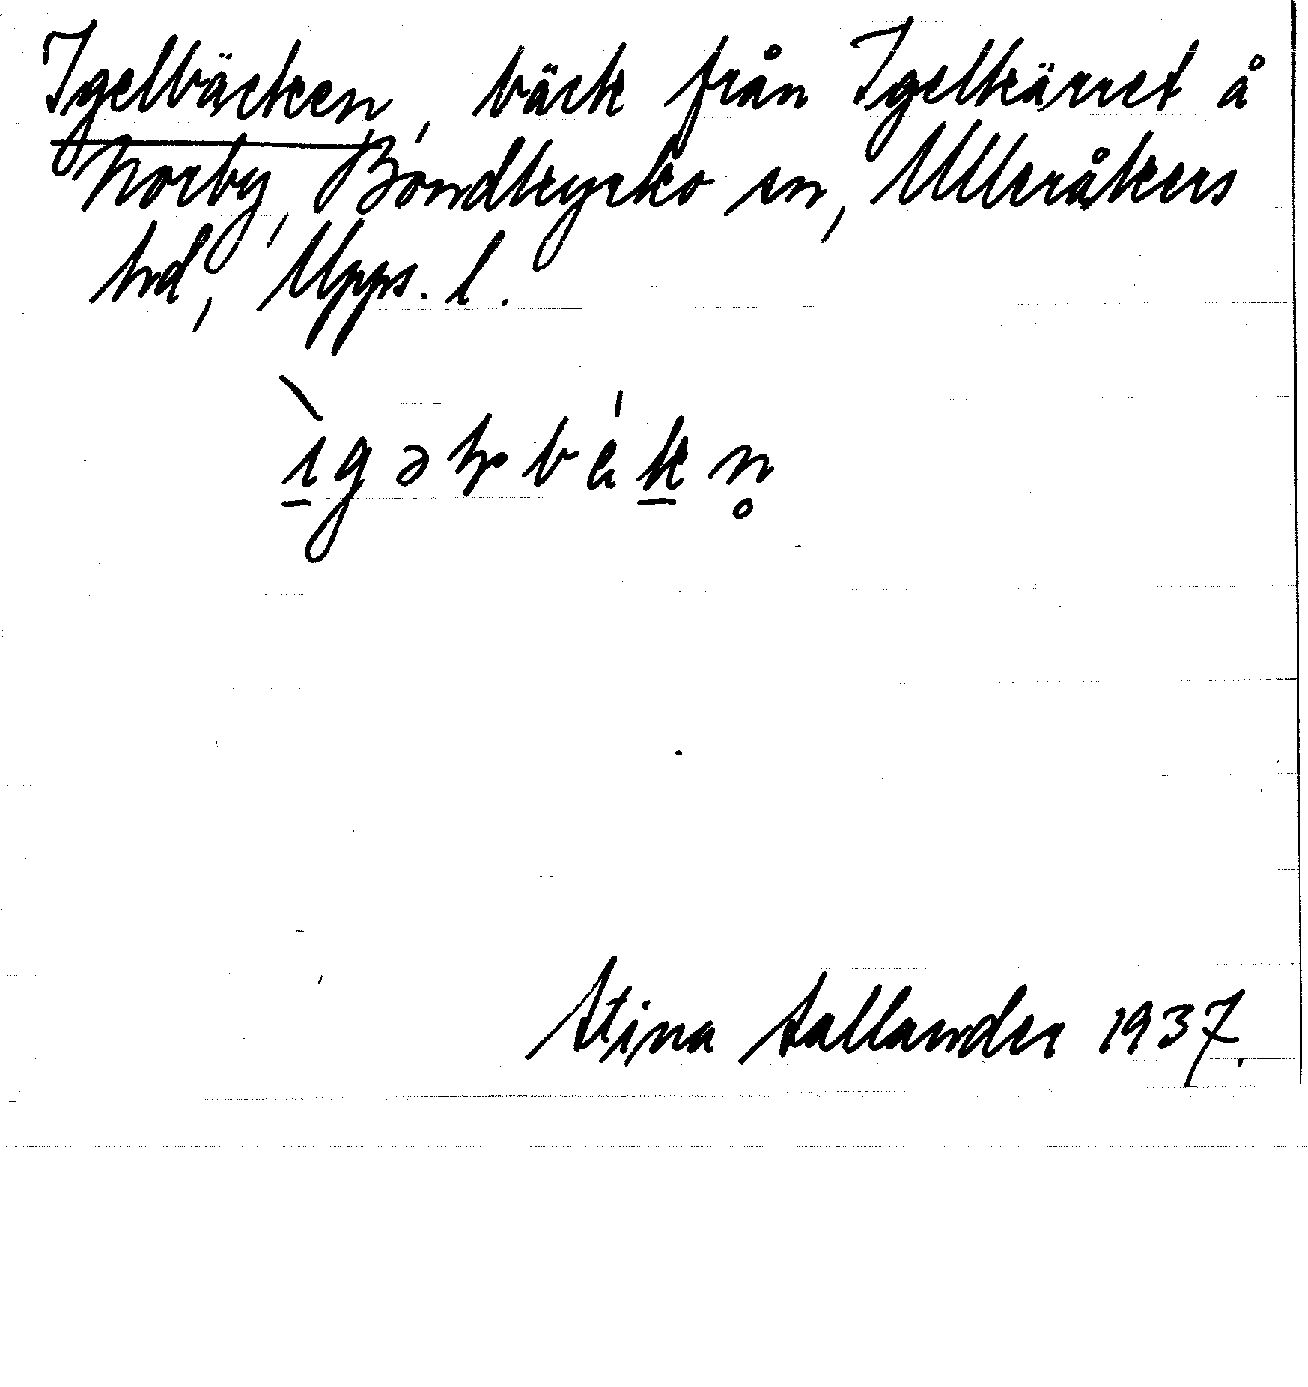 Igelbäcken, bäck från Igelkärret å
Norby, Bondkyrko sn, Ulleråkers
hd, Upps. l.
Stina Sallander 1937.